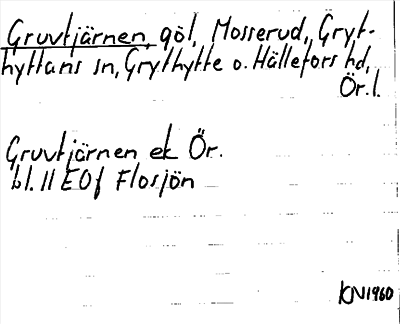 Gruvtjärnen, göl, Mosserud, Gryt-
hyttans sn, Grythytte o. Hällefors hd,
Ör.l.
Gruvtjärnen ek Ör.
bl. 11 E0f Flosjön
KN1960